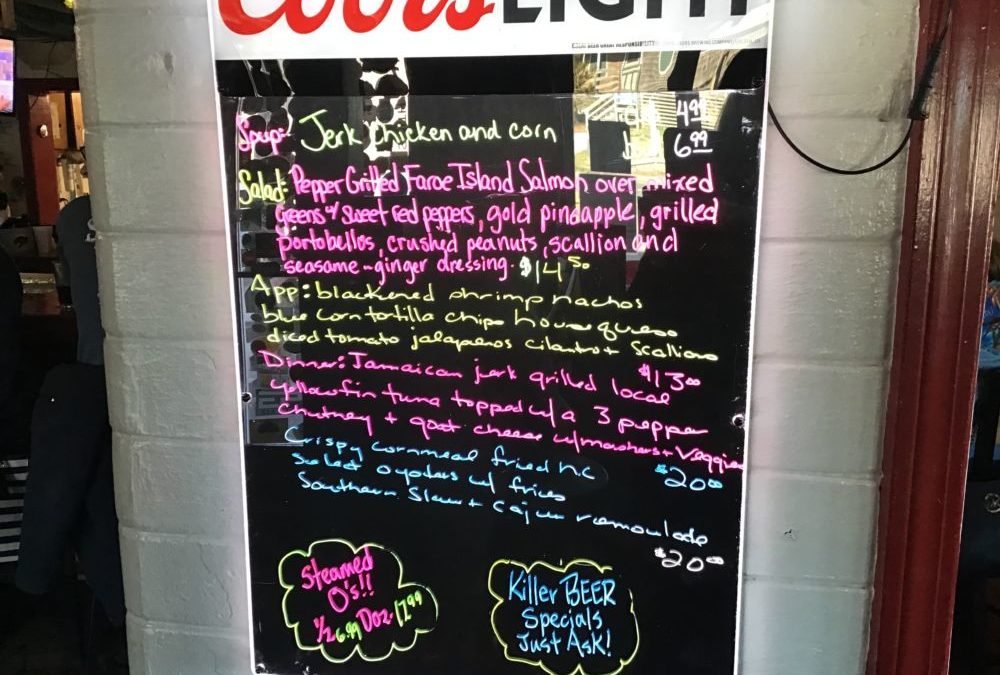 Coors LIGHT
Soup:- Jerk Chicken and corn
4.99
6.99
Salad: Pepper Grilled Faroe Island Salmon over mixed
Greens w/ sweet red peppers, gold pineapple, grilled
portobellos, crushed peanuts, scallion and
seasame-ginger dressing. $14.50
App: blackened shrimp nachos
blue corn tortilla chips house queso
diced tomato jalapenos cilantro + scallions
$13.00
Dinner: Jamaican jerk grilled local
yellowfin tuna topped w/ a 3 pepper
chutney + goat cheese w/ mashers + veggies
$20.00
Crispy cornmeal fried NC
Select oysters w/ fries
Southern Slaw + Cajun remoulade
$20.00
Steamed
O's!!
1/2 6.99 Doz. 12.99
Killer BEER
Specials
Just Ask!